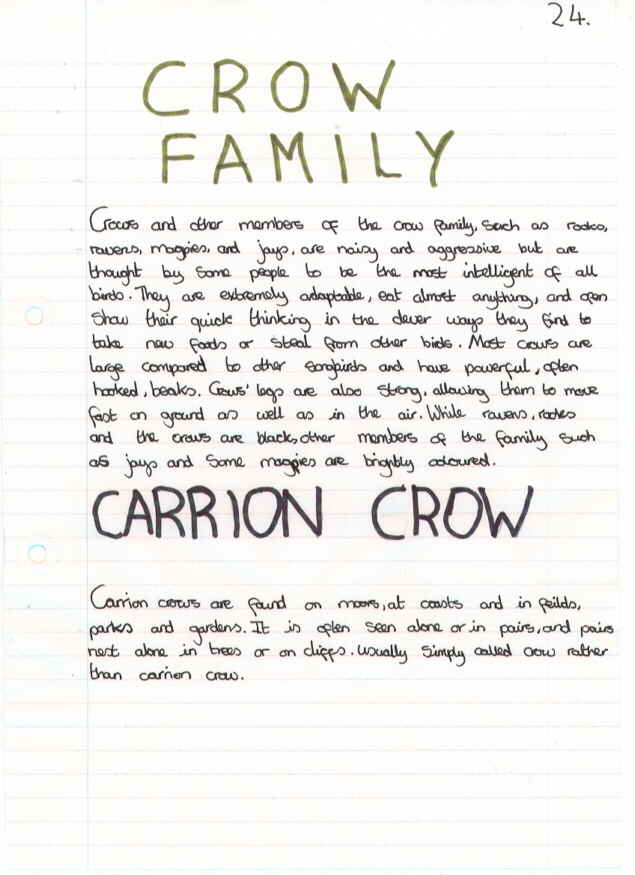 24.
CROW
FAMILY
Crows and other members of the crow family, such as rooks,
ravens, magpies, and jays, are noisy and aggressive but are
thought by some people to be the most intelligent of all
birds. They are extremely adaptable, eat almost anything, and often
show their quick thinking in the clever ways they find to
take new foods or steal from other birds. Most crows are
large compared to other songbirds and have powerful, often
hooked, beaks. Crows' legs are also strong, allowing them to move
fast on ground as well as in the air. While ravens, rooks
and the crows are black, other members of the family such
as jays and some magpies are brightly coloured.
CARRION CROW
Carrion crows are found on moors, at coasts and in feilds,
parks and gardens. It is often seen alone or in pairs, and pairs
nest alone in trees or on cliffs. Usually simply called crow rather
than carrion crow.